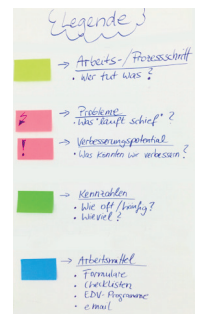 Legende
→ Arbeits-/Prozessschritt
• Wer tut was?
→ Probleme
• Was "läuft schief"?
!
→ Verbesserungspotential
• Was könnten wir verbessern?
→ Kennzahlen
• Wie oft/häufig?
• Wieviel?
→ Arbeitsmittel
• Formulare
• Checklisten
• EDV-Programme
• email